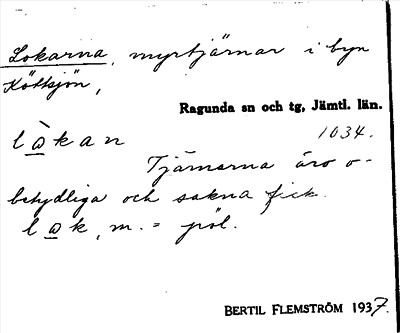 Lokarna, myrtjärnar i byn
Köttsjön,
Ragunda sn och tg, Jämtl. län.
1034.
lòkan
Tjärnarna äro o-
betydliga och sakna fisk.
lok, m. = pöl.
BERTIL FLEMSTRÖM 1937.